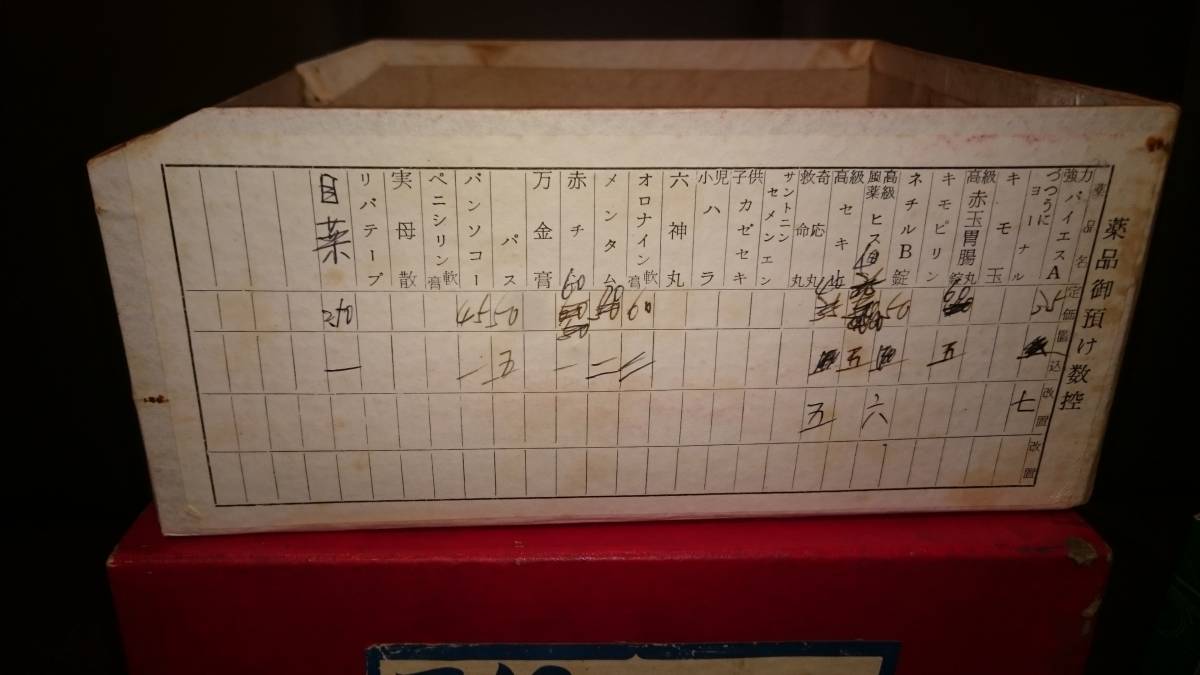 薬品御預け数控
薬品名 定価 置込 改置 改置
強力パイエスA
づつうにヨーナル 七
キモ玉
高級赤玉胃腸丸錠
キモピリン 60 五
ネチルB錠 50
高級風薬ヒス 六
高級セキ 五
奇応丸
救命丸 五
サントニンセメンエン
子供カゼセキ
小児ハラ
六神丸
オロナイン軟膏 60 二
メンタム 二
赤チン 60 一
万金膏
パス 50 五
バンソコー 45 一
ペニシリン軟膏
実母散
リバテープ
目薬 250 一